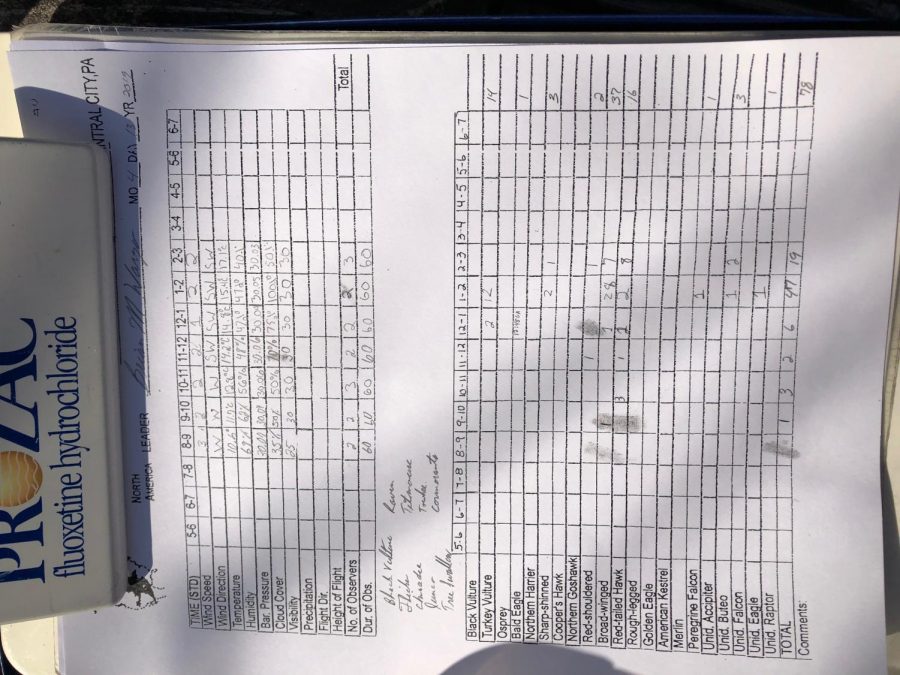 PROZAC
fluoxetine hydrochloride
NORTH
AMERICA LEADER
NTRAL CITY, PA
MO 4 DAY YR
TIME (STD) 5-6 6-7 7-8 8-9 9-10 10-11 11-12 12-1 1-2 2-3 3-4 4-5 5-6 6-7 Total
Wind Speed 3 2 2 2 1 2 2
Wind Direction W W W SW SW SW SW
Temperature
Humidity 67% 62% 56% 48%
Bar. Pressure 30.06 30.04 30.03
Cloud Cover 35% 50% 50% 75% 100%
Visibility 25 30 30 30 30 30 30
Precipitation
Flight Dir.
Height of Flight
No. of Observers 2 2 3 2 2 2 3
Dur. of Obs. 60 60 60 60 60 60 60
Black Vulture Raven
Flicker Titmouse
Chickadee
Cormorants
Tree Swallow
5-6 6-7 7-8 8-9 9-10 10-11 11-12 12-1 1-2 2-3 3-4 4-5 5-6 6-7
Black Vulture
Turkey Vulture 2 12 14
Osprey
Bald Eagle
Northern Harrier 1
Sharp-shinned
Cooper's Hawk 2 1 3
Northern Goshawk
Red-shouldered 1
Broad-winged 1 2
Red-tailed Hawk 28 7 37
Rough-legged 3 1 2 8 16
Golden Eagle
American Kestrel
Merlin
Peregrine Falcon
Unid. Accipiter 1 1
Unid. Buteo
Unid. Falcon 1 2 3
Unid. Eagle 1
Unid. Raptor 1
TOTAL 1 3 2 6 47 19
Comments: 78